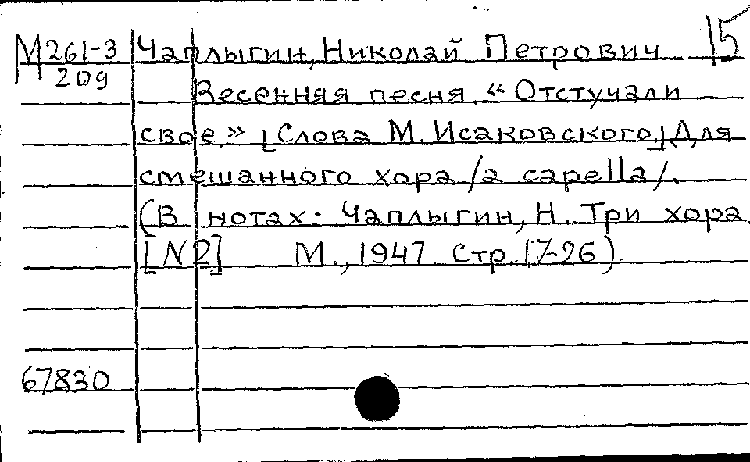 М261-3 Чаплыгин, Николай Петрович 15
209
Весенняя песня. "Отстучали
свое." [Слова М. Исаковского] Для
смешанного хора /a capella/.
(В нотах: Чаплыгин, Н. Три хора
[N2] М., 1947. Стр. 17-26)
67830